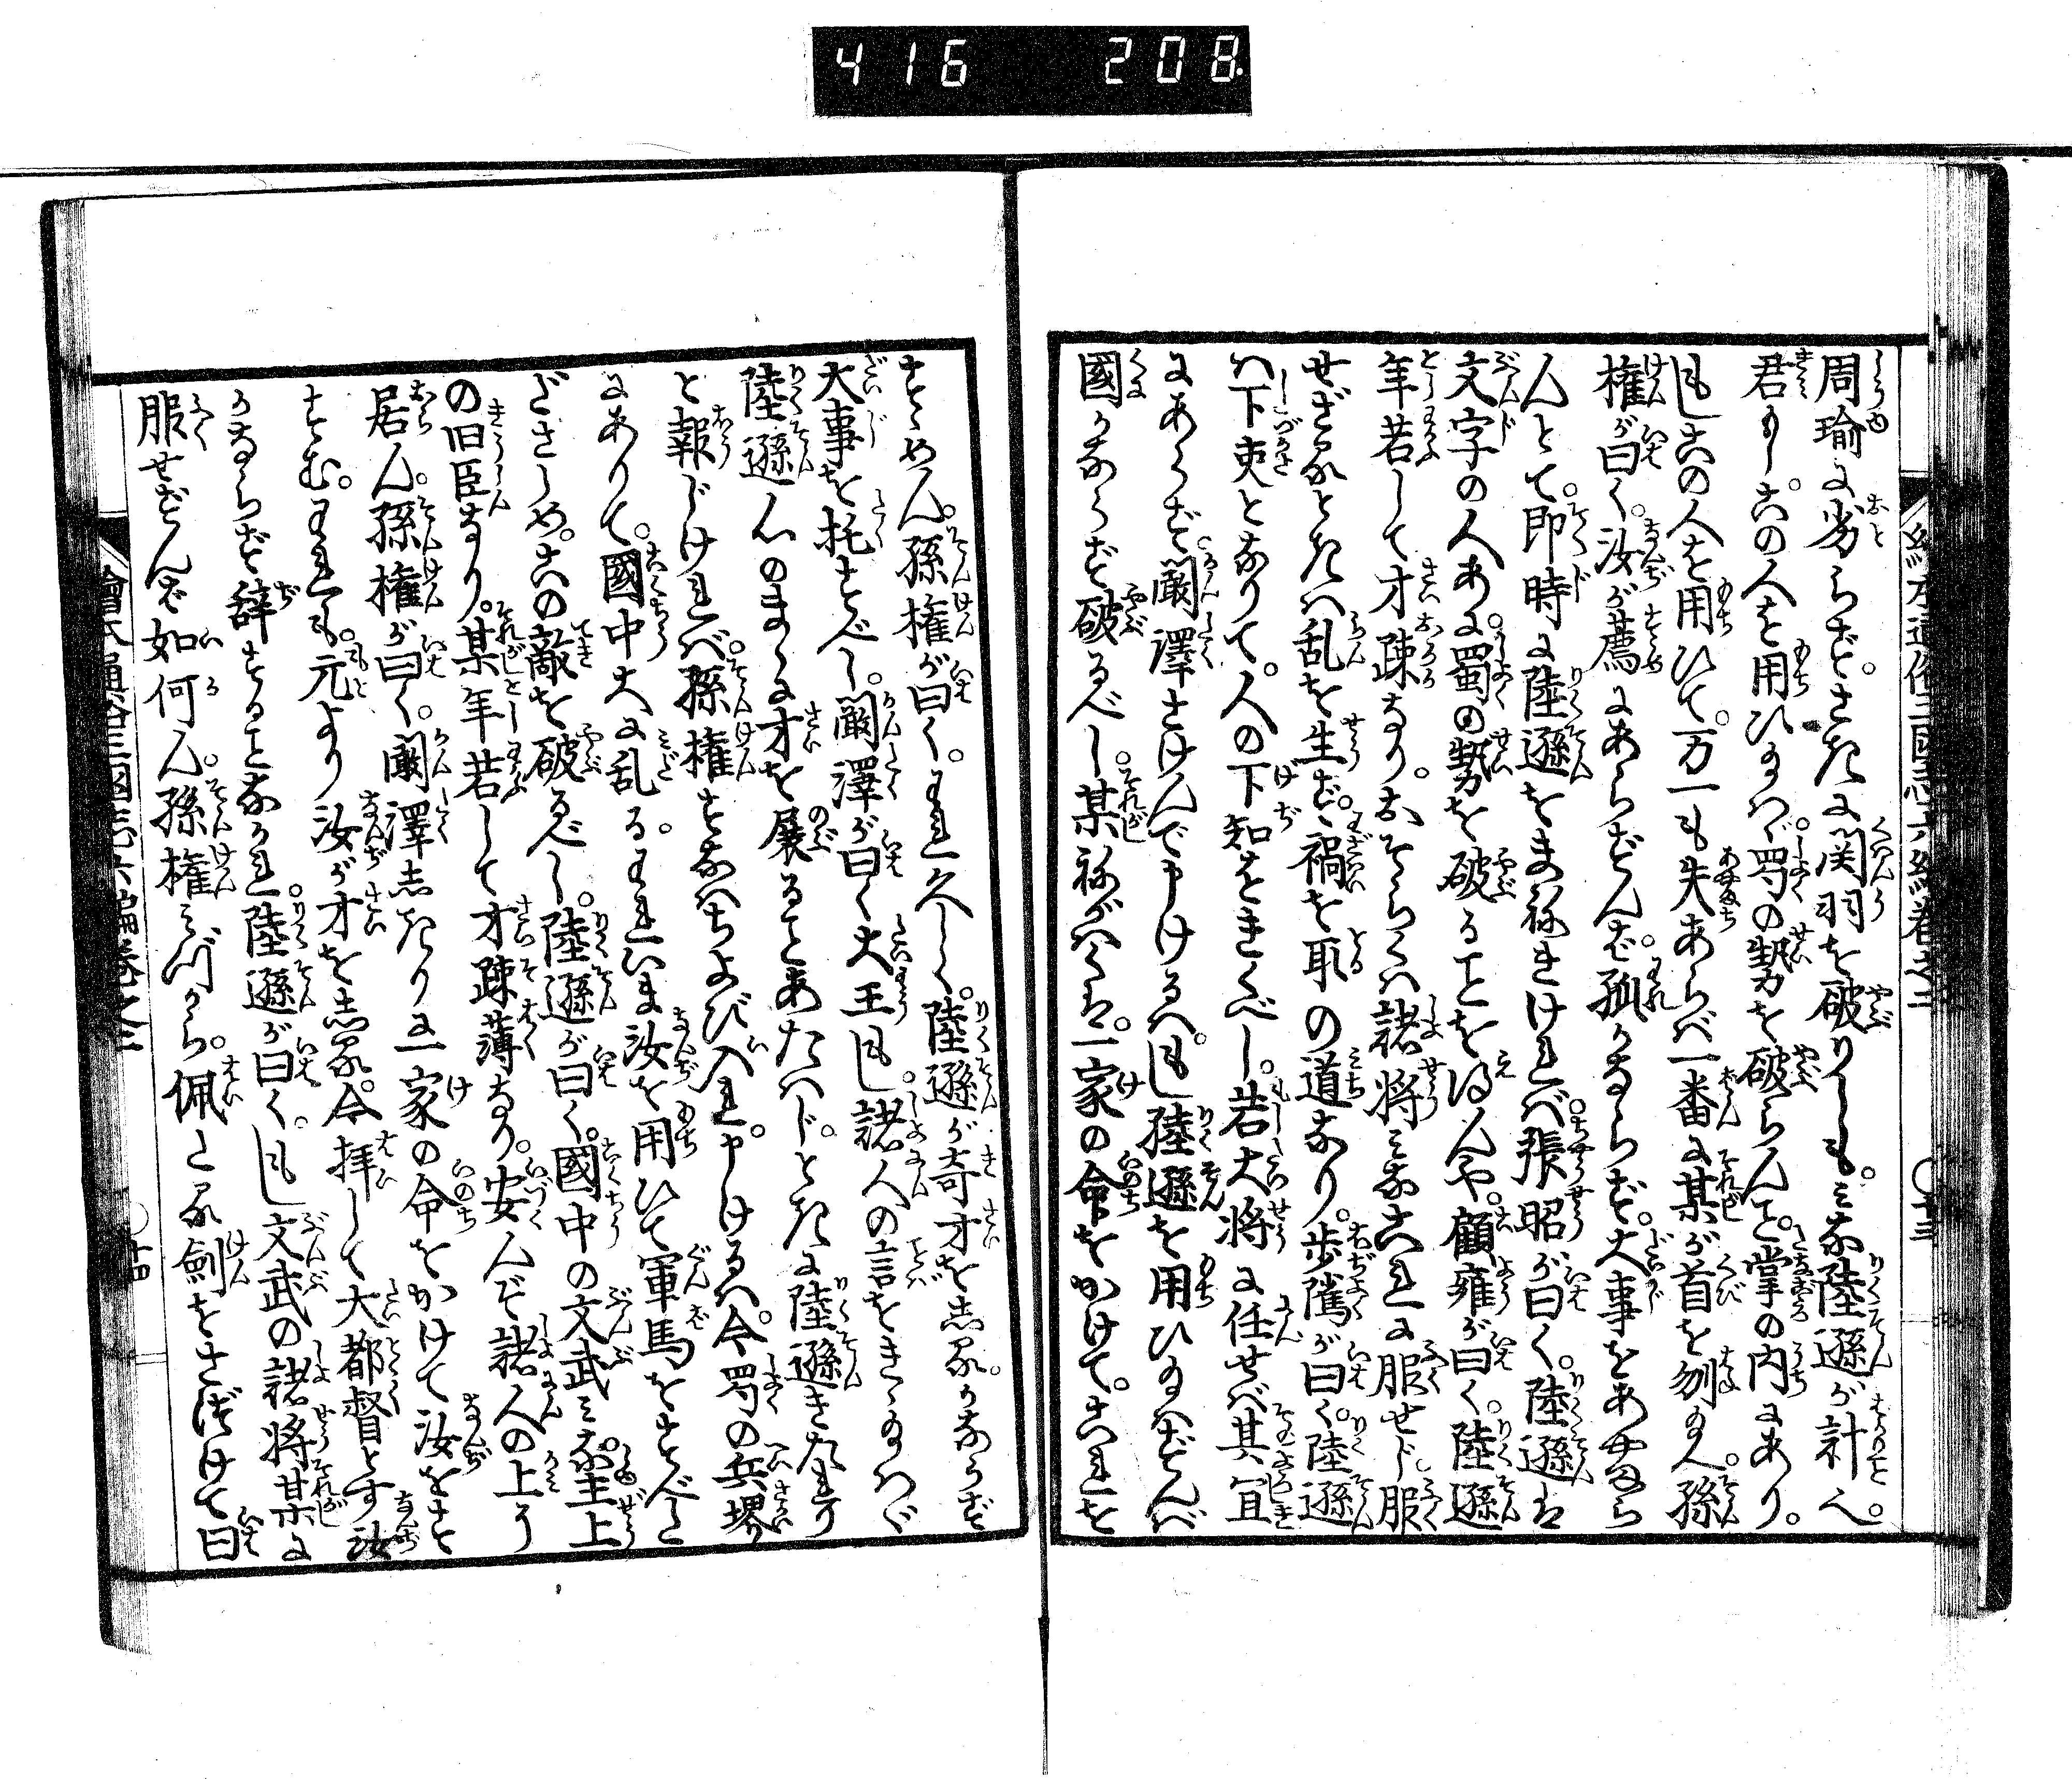 416 208
周瑜に劣らず。さきに関羽を破りしも。みな陸遜が計へ。
君もしこの人を用ひ給はゞ。蜀の勢を破らんこと。掌の内にあり。
もしこの人を用ひて。万一も失あらば一番に某が首を刎給へ。孫
権が曰く。汝が薦にあらずんば。孤かならず大事をあやまら
んとて。即時に陸遜をまねきければ。張昭が曰く。陸遜は
文字の人あに蜀の勢を破ることを得んや。顧雍が曰く。陸遜
年若して才疎なり。おそらくは諸将みなこれに服せじ。服
せざるときは乱を生ず。禍を取の道なり。歩隲が曰く。陸遜
は下吏となりて。人の下知をきくべし。若大将に任せば其宜
にあらず。闞澤さけんで申けるは。もし陸遜を用ひ給はずんば
國かならず破るべし。某ねがはくは。一家の命をかけて。これを
すゝめん。孫権が曰く。われ久しく。陸遜が奇才をしる。かならず
大事を托すべし。闞澤が曰く大王もし。諸人の言をきゝ給はゞ
陸遜心のまゝに才を展ることあたはじ。ときに陸遜きたれり
と報じければ。孫権すなはちよび入れ。申しけるは。今蜀の兵堺
にありて。國中大に乱る。われいま汝を用ひて軍馬をすべ
ださしめ。この敵を破るべし。陸遜が曰く。國中の文武みな主上
の旧臣なり。某年若して才疎薄なり。安んぞ諸人の上に
居ん。孫権が曰く。闞澤したりに一家の命をかけて汝をす
すむ。われも。元より汝が才をしる。今拝して大都督とす汝
かならず辞することなかれ。陸遜が曰く。もし文武の諸将某に
服せずんば如何ん。孫権みづから。佩たる劍をさづけて曰
繪本通俗三國志六編巻之二
十三
十四